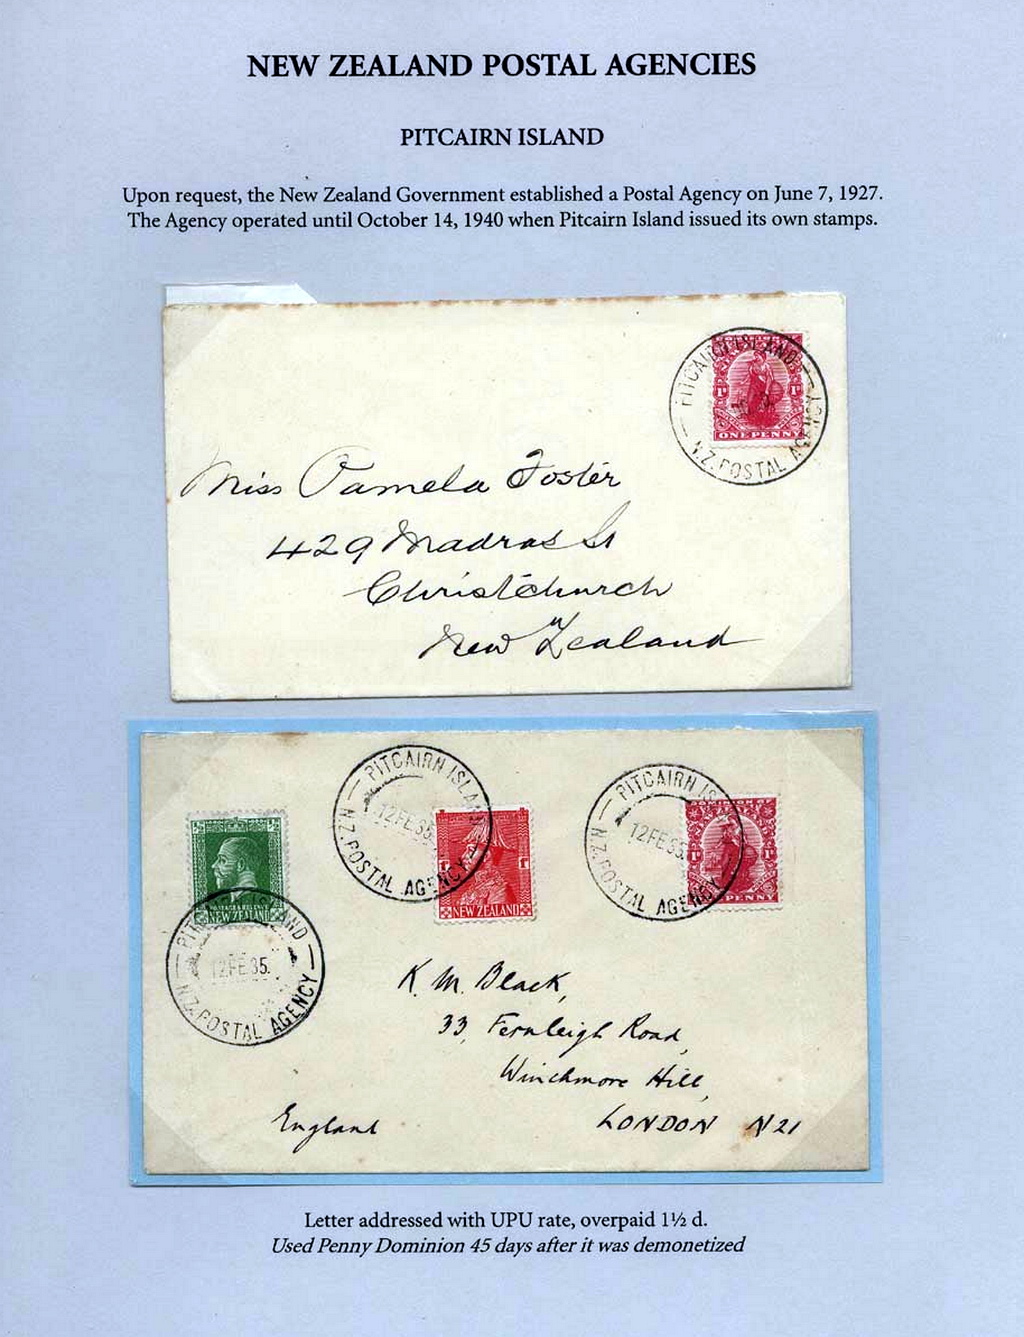 NEW ZEALAND POSTAL AGENCIES
PITCAIRN ISLAND
Upon request, the New Zealand Government established a Postal Agency on June 7, 1927.
The Agency operated until October 14, 1940 when Pitcairn Island issued its own stamps.
PITCAIRN ISLAND
N.Z. POSTAL AGENCY
1D 1D
ONE PENNY
Miss Pamela Foster
429 Madras St
Christchurch
New Zealand
PITCAIRN ISLAND
12 FE 35
N.Z. POSTAL AGENCY
NEW ZEALAND
PITCAIRN IS
12 FE 35
N.Z. POSTAL AGENCY
1D
PENNY
½ ½
POSTAGE & REVENUE
NEW ZEALAND
PITCAIRN ISLAND
12 FE 35.
N.Z. POSTAL AGENCY
K. M. Black,
33, Fernleigh Road,
Winchmore Hill,
England LONDON N21
Letter addressed with UPU rate, overpaid 1½ d.
Used Penny Dominion 45 days after it was demonetized